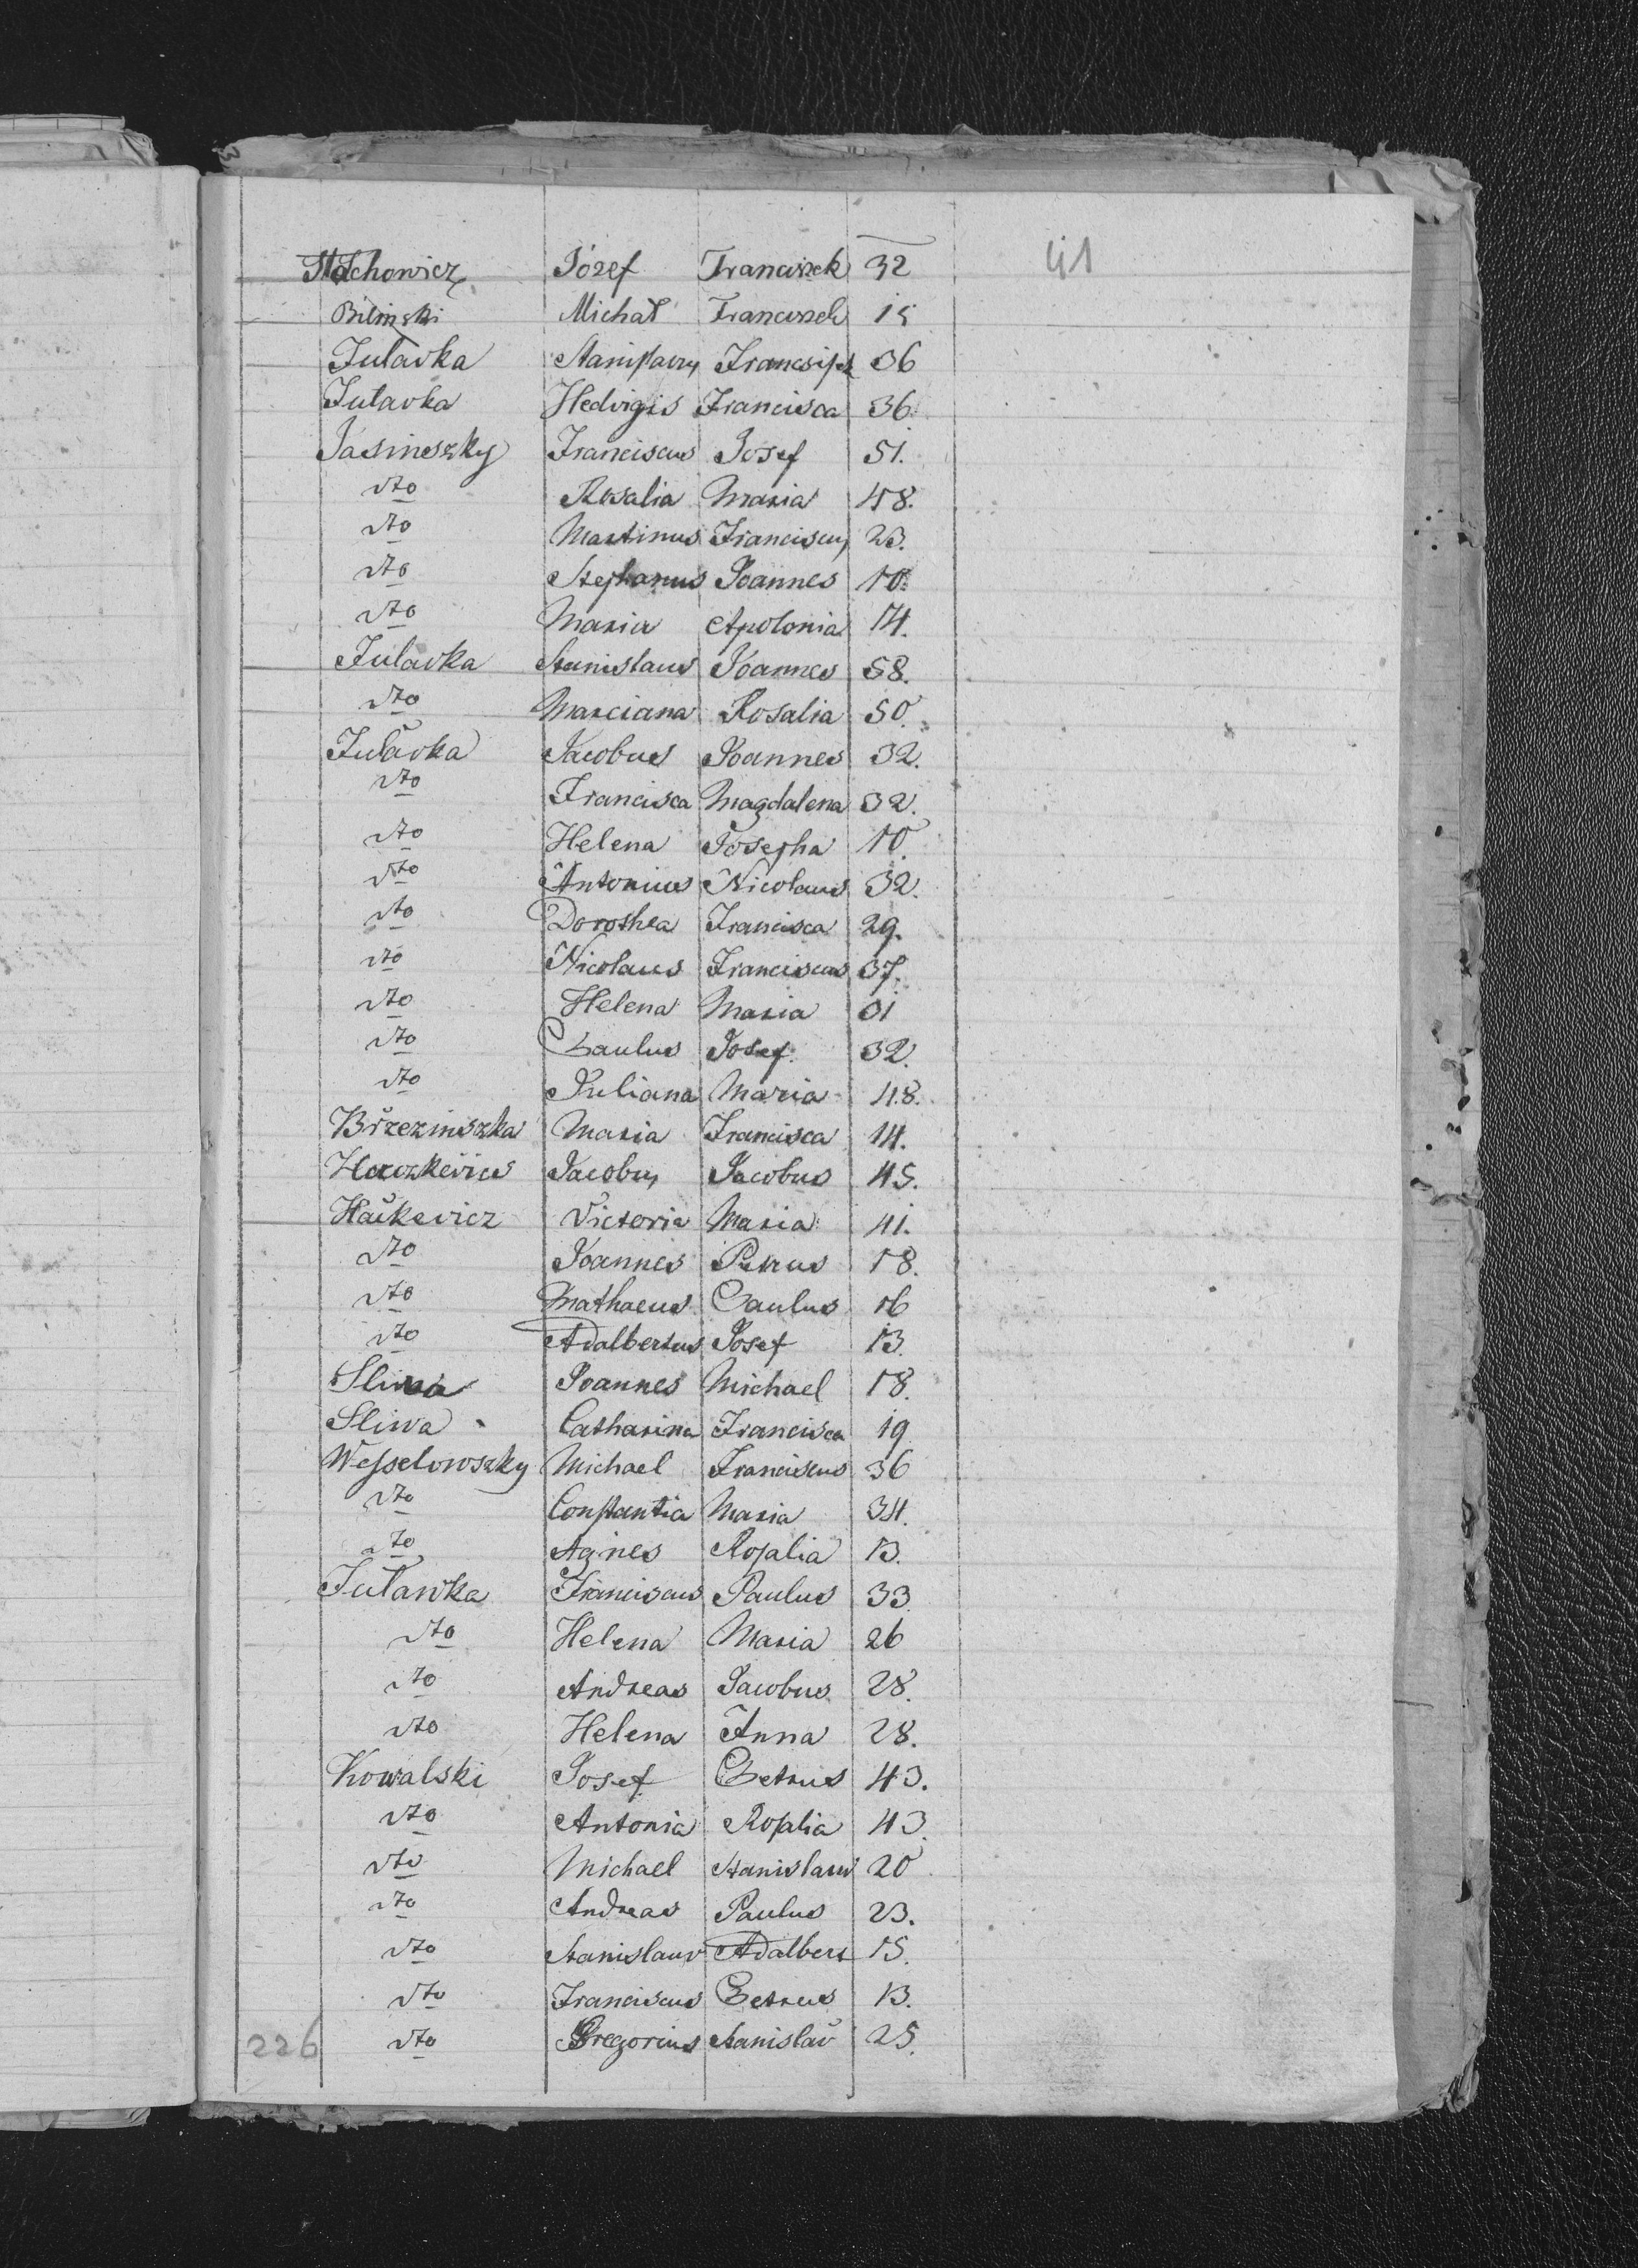 41
Stachowicz Józef Franciszek 32
Bilinski Michał Franciszek 15
Julavka Stanislaus 36
Julavka Hedvigis Francisca 36.
Jasineszky Franciscus Josef 51.
dto Rosalia Maria 48.
dto Martinus Franciscus 23.
dto Stephanus Joannes 10.
dto Maria Apolonia 14.
Julavka Stanislaus Joannes 58.
dto Marciana Rosalia 50.
Julavka Jacobus Joannes 32.
dto Francisca Magdalena 32.
dto Helena Josepha 10.
dto Antonius Nicolaus 32.
dto Dorothea Francisca 29.
dto Nicolaus Franciscus 37.
dto Helena Maria 31
dto Paulus Josef. 32.
dto Juliana Maria 48.
Bržezinszka Maria Francisca 14.
Jacobus Jacobus 45.
Hačkevicz Victoria Maria 41.
dto Joannes Petrus 18.
dto Mathaeus Paulus 16
dto Adalbertus Josef 13.
Sliwa Joannes Michael 18.
Sliwa Catharina Francisca 19
Wesselowszky Michael Franciscus 36
dto Constantia Maria 34.
dto Agnes Rosalia 13.
Julawka Franciscus Paulus 33
dto Helena Maria 26
dto Andreas Jacobus 28.
dto Helena Anna 28.
Kowalski Josef Petrus 43.
dto Antonia Rosalia 43.
dto Michael Stanislaus 20.
dto Andreas Paulus 23.
dto Stanislaus Adalbert 15.
dto Franciscus Petrus 13.
226 dto Gregorius Stanislav 25.